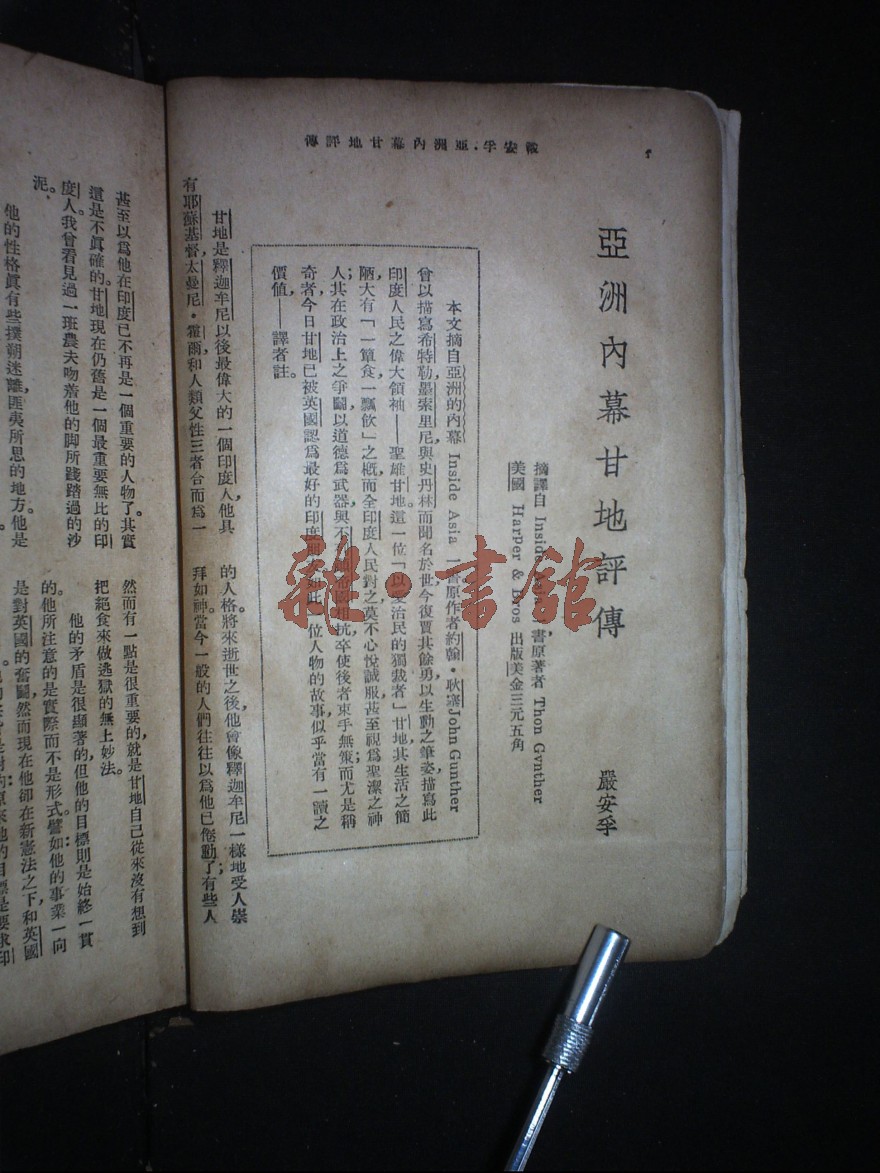 嚴安孚·亞洲內幕甘地評傳
亞洲內幕甘地評傳
嚴安孚
摘譯自 Inside Asia 一書原著者 Thon Gvnther
美國 Harper & Bros 出版美金三元五角
本文摘自亞洲的內幕 Inside Asia 一書原作者約翰·耿塞John Gunther
曾以描寫希特勒墨索里尼與史丹林而聞名於世今復賈其餘勇以生動之筆姿描寫此
印度人民之偉大領袖——聖雄甘地。這一位「以愛治民的獨裁者」甘地其生活之簡
陋大有「一簞食一瓢飲」之概而全印度人民對之莫不心悅誠服甚至視為聖潔之神
人其在政治上之爭鬬以道德為武器與不帝國相抗卒使後者束手無策而尤是稱
奇者今日甘地已被英國認為最好的印度如此一位人物的故事似乎當有一讀之
價值——譯者註。
甘地是釋迦牟尼以後最偉大的一個印度人,他具
有耶穌基督太曼尼·霍爾,和人類父性三者合而為一
的人格將來逝世之後,他會像釋迦牟尼一樣地受人崇
拜如神。當今一般的人們往往以為他已倦勤了;有些人
甚至以為他在印度已不再是一個重要的人物了。其實
這是不眞確的。甘地現在仍舊是一個最重要無比的印
度人。我曾看見過一班農夫吻着他的脚所踐踏過的沙
泥。
他的性格眞有些撲朔迷離匪夷所思的地方。他是
然而有一點是很重要的,就是甘地自己從來沒有想到
把絕食來做逃獄的無上妙法。
他的矛盾是很顯著的但他的目標則是始終一貫
的他所注意的是實際而不是形式。譬如他的事業一向
是對英國的奮鬬,然而現在他卻在新憲法之下和英國
雜·書館